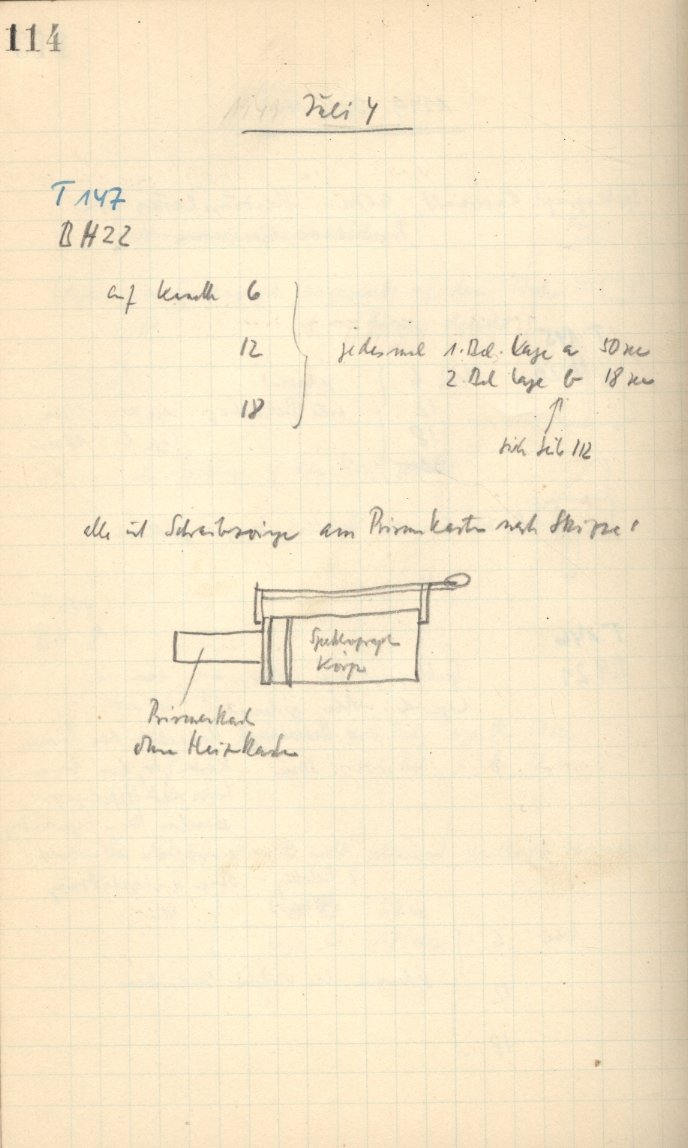 114
Juli 4
T 147
BH22
auf 6
12
18
jedesmal 1. Bel. Lage a 50 sec
2. Bel Lage b 18 sec
112
alle mit Schraubzwinge am Prismenkasten nach Skizze!
Spektrograph
Körper
Prismenkasten
ohne Heizkasten